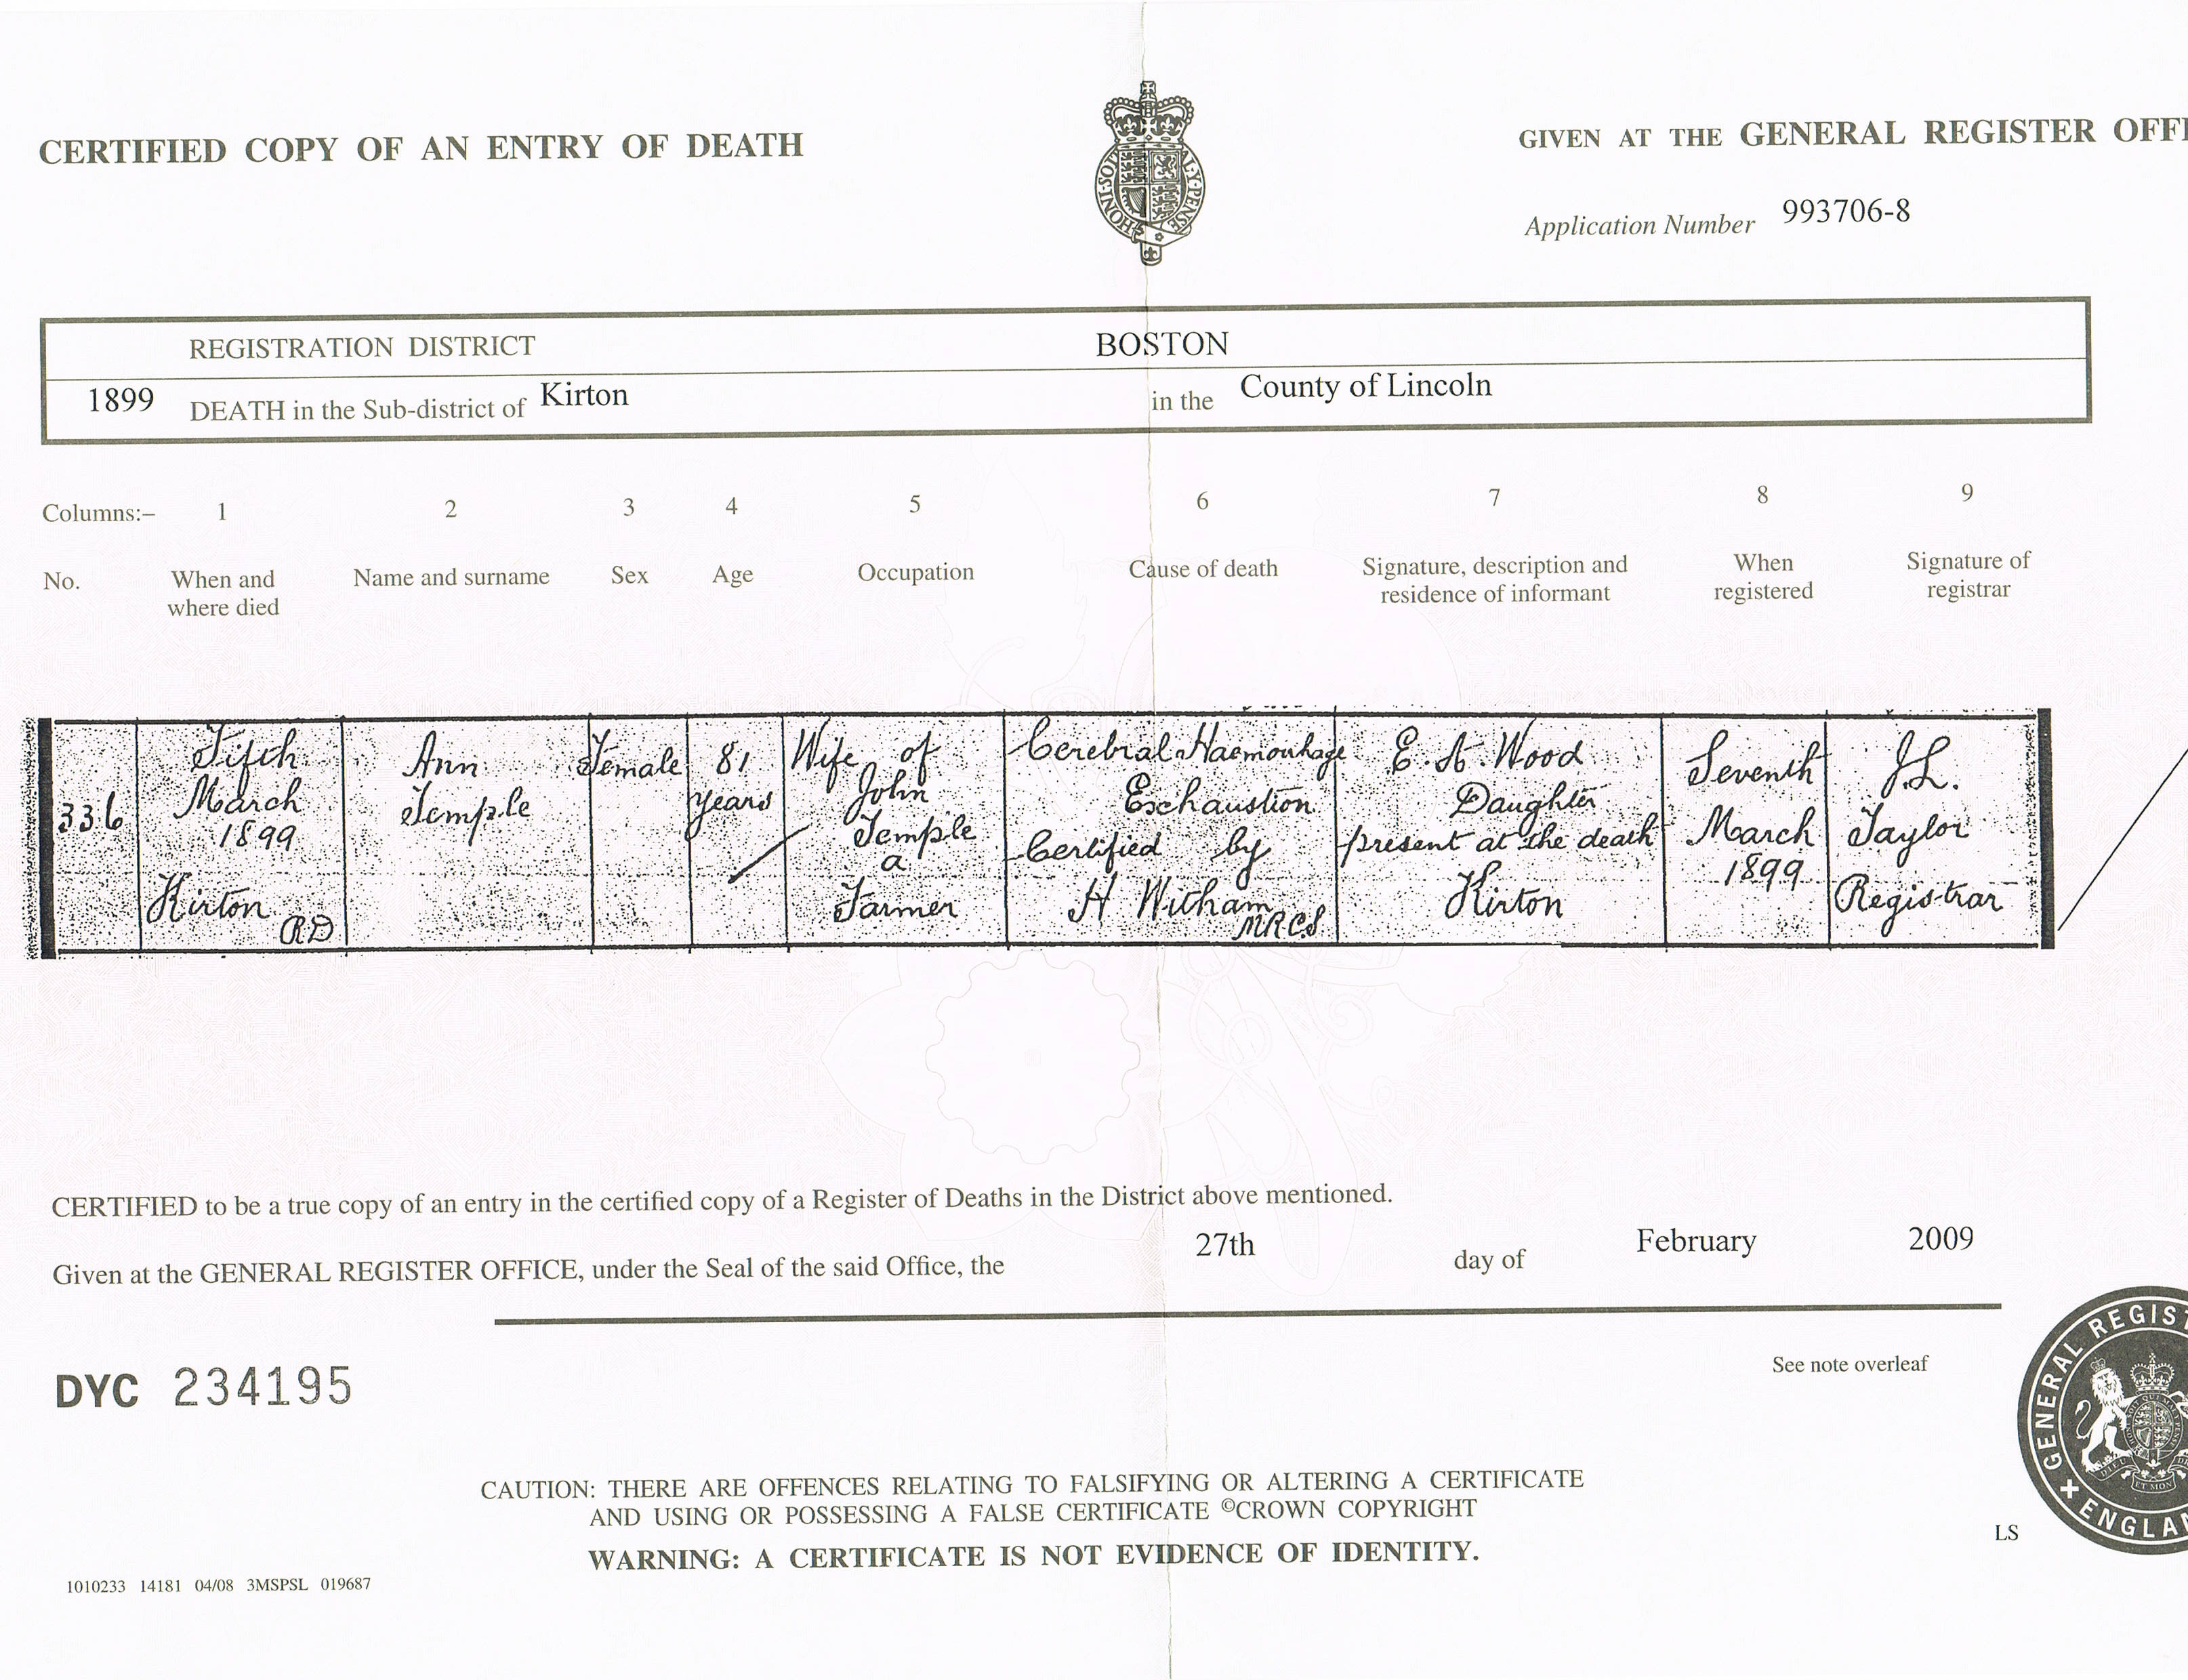 CERTIFIED COPY OF AN ENTRY OF DEATH
GIVEN AT THE GENERAL REGISTER OFFI
HONI·SOI AL·Y·PENSE
Application Number 993706-8
REGISTRATION DISTRICT BOSTON
1899 DEATH in the Sub-district of Kirton in the County of Lincoln
Columns:– 1 2 3 4 5 6 7 8 9
No.
When and
where died
Name and surname
Sex
Age
Occupation
Cause of death
Signature, description and
residence of informant
When
registered
Signature of
registrar
336
Fifth
March
1899
Kirton
RD
Ann
Temple
Female
81
years
Wife of
John
Temple
a
Farmer
Cerebral Haemorrhage
Exhaustion
Certified by
H Witham
MRCS
E. A. Wood
Daughter
present at the death
Kirton
Seventh
March
1899
J.L.
Taylor
Registrar
CERTIFIED to be a true copy of an entry in the certified copy of a Register of Deaths in the District above mentioned.
Given at the GENERAL REGISTER OFFICE, under the Seal of the said Office, the 27th day of February 2009
DYC 234195
See note overleaf
GENERAL REGIST
ENGLAN
CAUTION: THERE ARE OFFENCES RELATING TO FALSIFYING OR ALTERING A CERTIFICATE
AND USING OR POSSESSING A FALSE CERTIFICATE ©CROWN COPYRIGHT
LS
WARNING: A CERTIFICATE IS NOT EVIDENCE OF IDENTITY.
1010233 14181 04/08 3MSPSL 019687